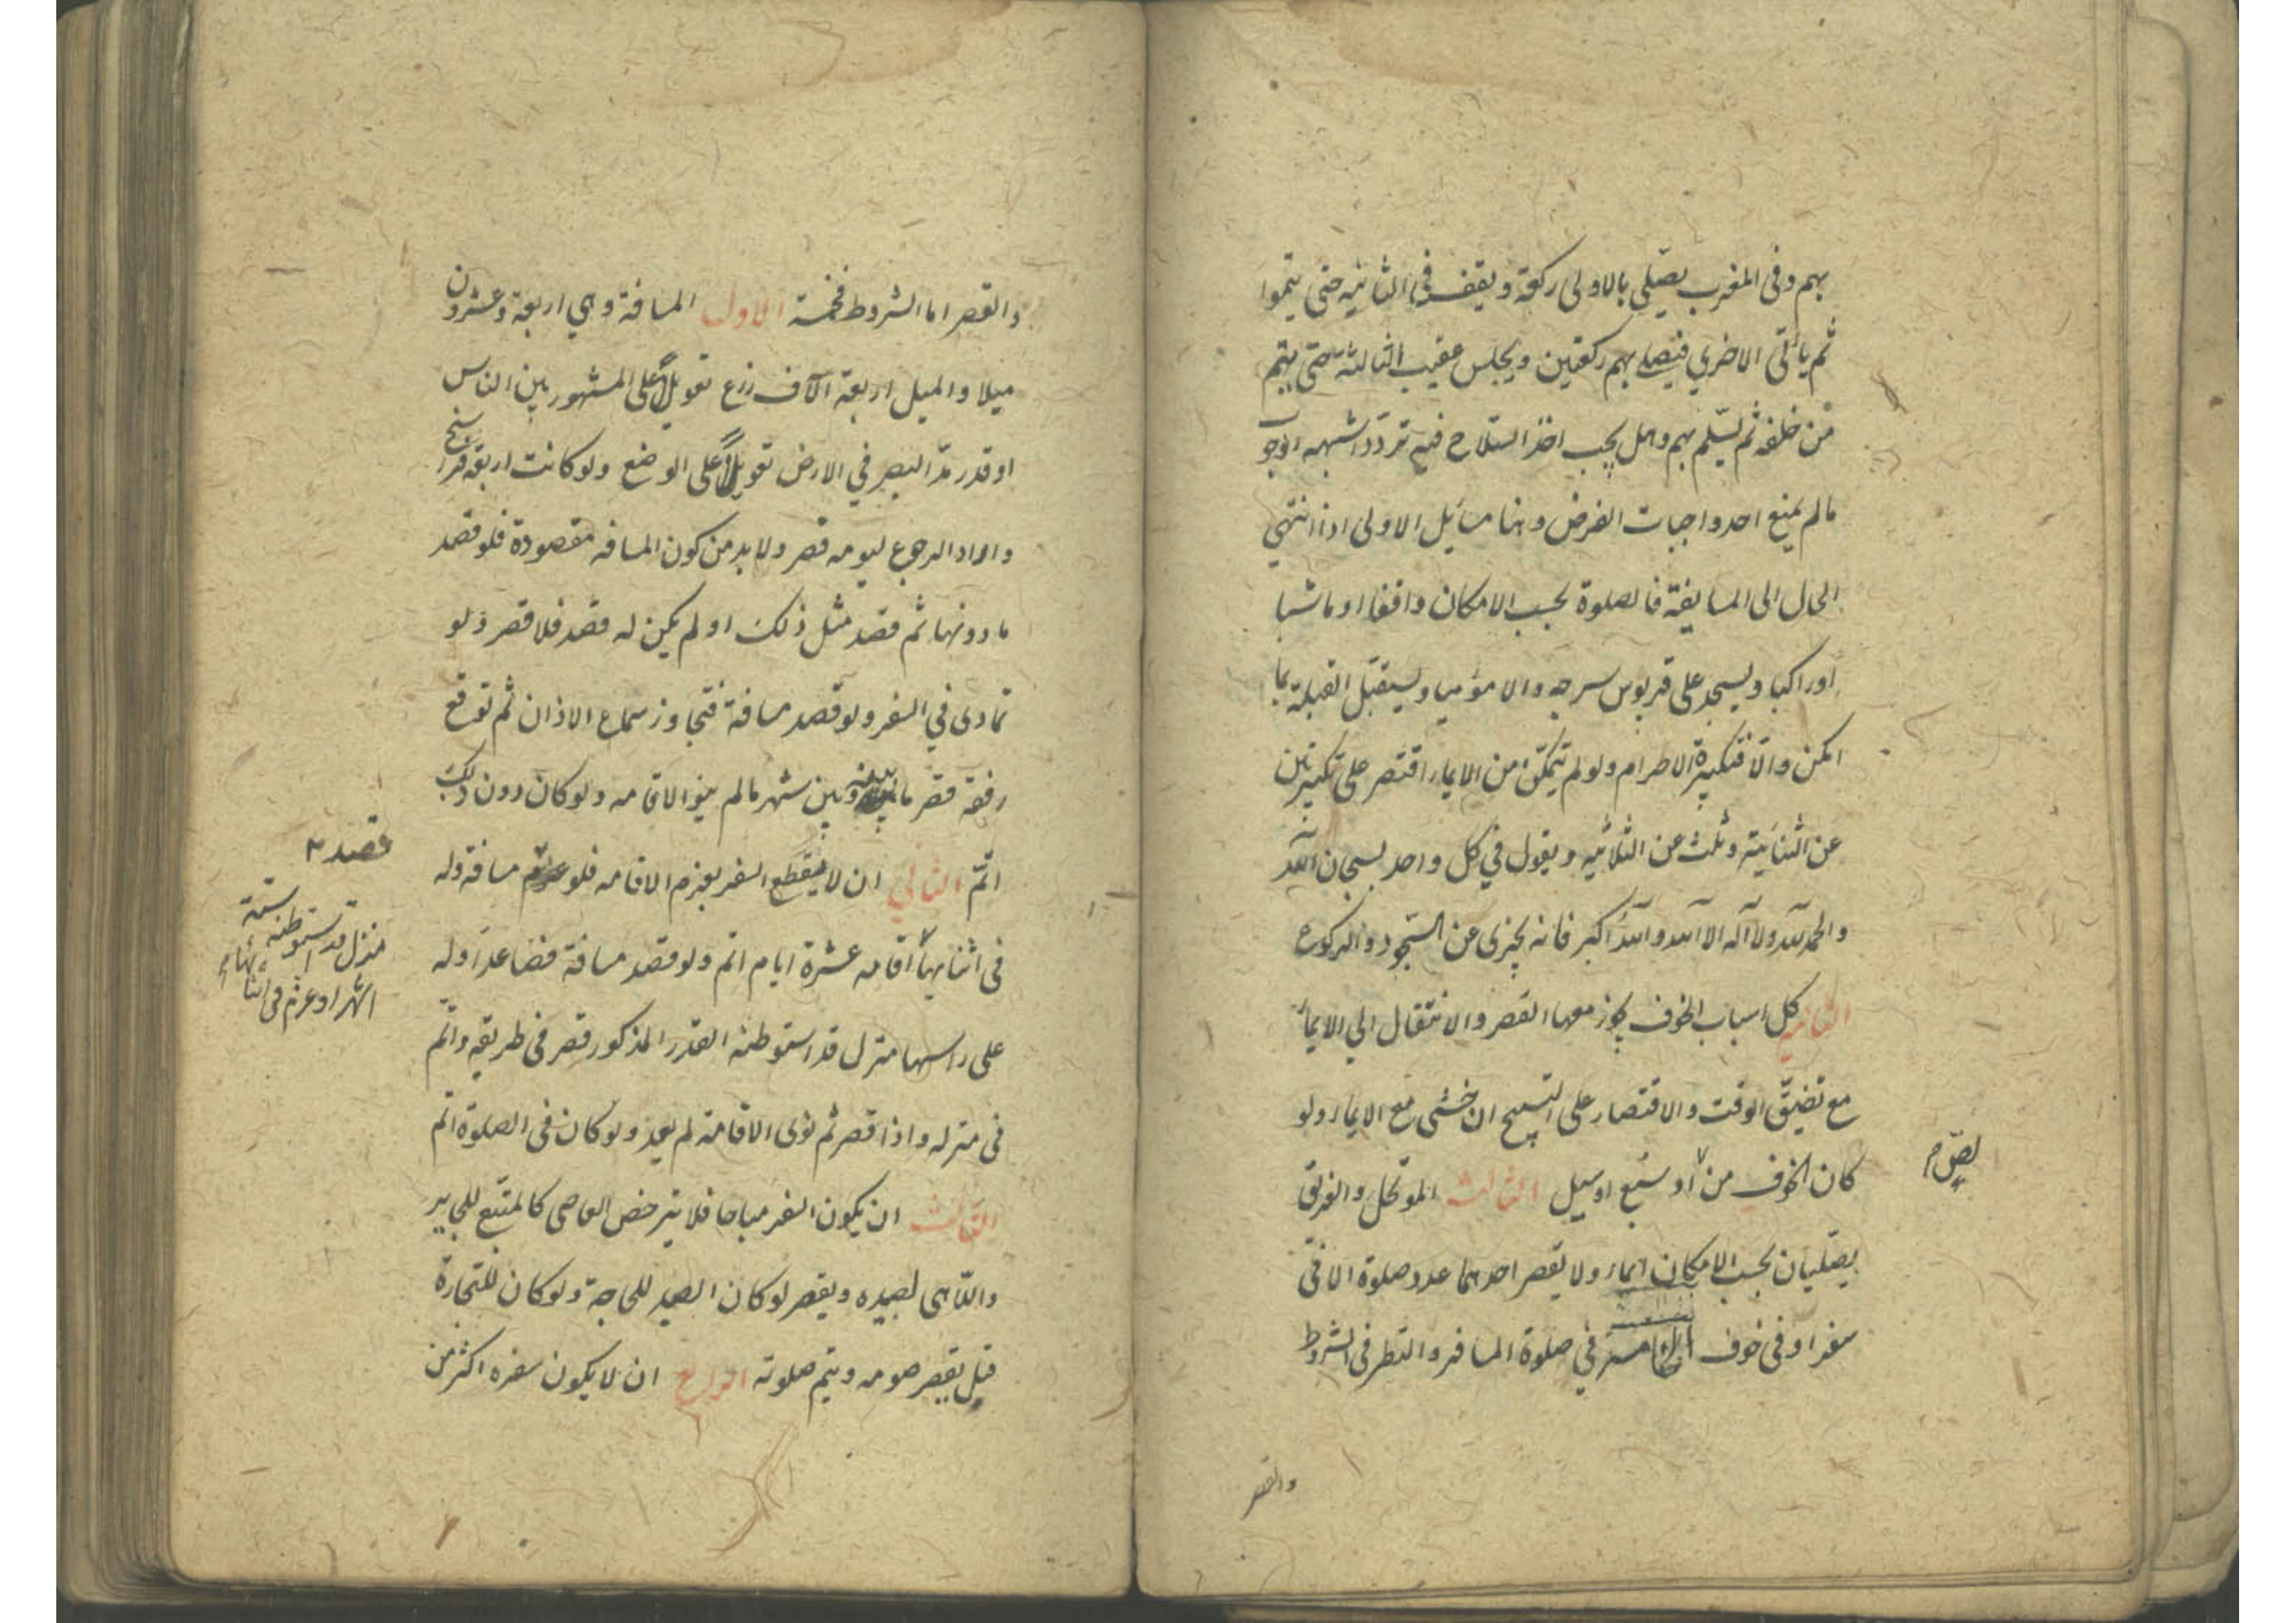 بهم وفى المغرب يصلى بالاولى ركعة ويقف فى الثانيه حتى يتموا
ثم ياتى الاخرى فيصلي بهم ركعتين ويجلس عقيب الثالثة حتى يتم
من خلفه ثم يسلم بهم وهل يجب اخذ السلاح فيه تردد اشبهه الوجوب
مالم يمنع احد واجبات الفرض وهنا مسائل الاولى اذا انتهى
الحال الى المسايفة فالصلوة بحسب الامكان واقفا او ماشيا
او راكبا ويسجد على قربوس سرجه والا موميا ويستقبل القبلة بما
امكن والا فتكبيرة الاحرام ولو لم يتمكن من الايماء اقتصر على تكبيرتين
عن الثنائية وثلث عن الثلاثيه ويقول في كل واحد سبحان الله
والحمد لله ولا آله الا الله والله اكبر فانه يجزى عن السجود والركوع
الثانيه كل اسباب الخوف يجوز معها القصر والانتقال الي الايماء
مع تضيق الوقت والاقتصار على التسبيح ان خشى مع الايماء ولو
كان الخوف من او سبع او سيل الثالث الموتحل والغريق
لص م
يصليان بحسب الامكان ايماء ولا يقصر احدهما عدد صلوة الا فى
سفر او فى خوف الخامسة في صلوة المسافر والنظر فى الشروط
والقصر
والقصر اما الشروط فخمسة الاول المسافة وهي اربعة وعشرون
ميلا والميل اربعة آلاف ذرع تعويلا على المشهور بين الناس
او قدر مد البصر في الارض تعويلا على الوضع ولو كانت اربعة فراسخ
واراد الرجوع ليومه قصر ولا بد من كون المسافه مقصودة فلو قصد
ما دونها ثم قصد مثل ذلك او لم يكن له قصد فلا قصر ولو
تمادى في السفر ولو قصد مسافة فتجاوز سماع الاذان ثم توقع
رفقة قصر ما بينه وبين شهر مالم ينو الاقامه ولو كان دون ذلك
اتم الثاني ان لا ينقطع السفر بعزم الاقامه فلو عزم مسافة وله
قصد م
فى اثنائها اقامه عشرة ايام اتم ولو قصد مسافة فصاعدا وله
منزل قد استوطنه ستة
اشهر او عزم فى اثنائها م
على راسها منزل قد استوطنه القدر المذكور قصر فى طريقه واتم
فى منزله واذا قصر ثم نوى الاقامة لم يعد ولو كان فى الصلوة اتم
الثالث ان يكون السفر مباحا فلا يترخص العاصى كالمتبع للجاير
واللاهى لصيده ويقصر لو كان الصيد للحاجة ولو كان للتجارة
قيل يقصر صومه ويتم صلوته الرابع ان لا يكون سفره اكثر من